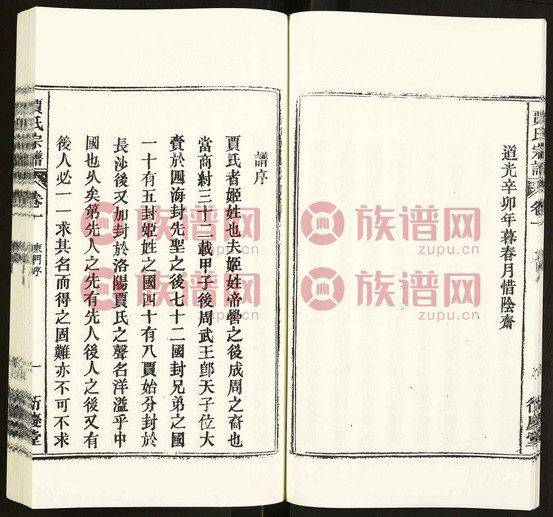 道光辛卯年暮春月惜陰齋
賈氏宗譜
卷一
衍慶堂
譜序
賈氏者姬姓也夫姬姓帝嚳之後成周之裔也
當商紂三十二載甲子後周武王卽天子位大
賚於四海封先聖之後七十二國封兄弟之國
一十有五封姬姓之國四十有八賈始分封於
長沙後又加封於洛陽賈氏之聲名洋溢乎中
國也久矣第先人之先有先人後人之後又有
後人必一一求其名而得之固難亦不可不求
賈氏宗譜
卷一
東門序
一
衍慶堂
族谱网
zupu.cn
族谱网
zupu.cn
族谱网
zupu.cn
族谱网
zupu.cn